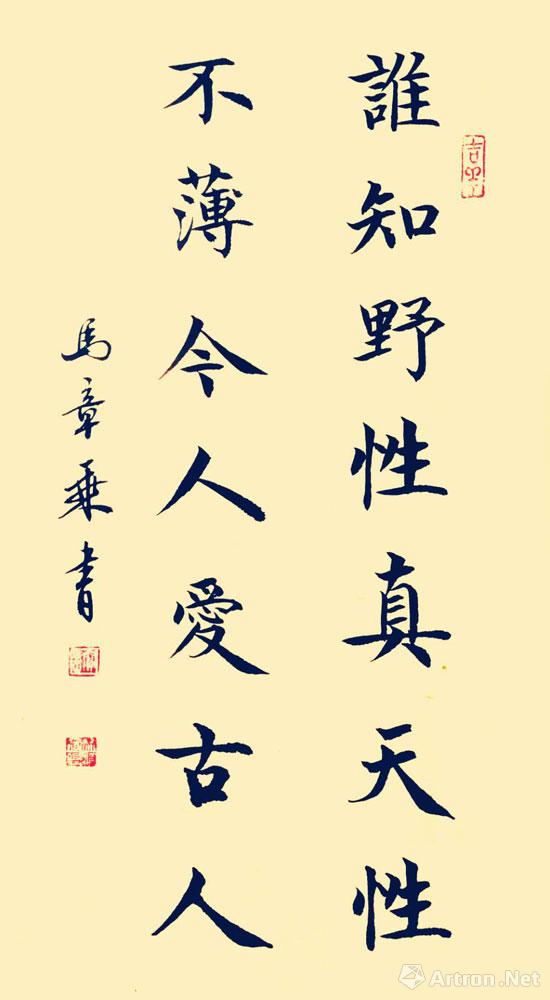 誰知野性真天性
不薄今人愛古人
馬章乘書
Artron.Net